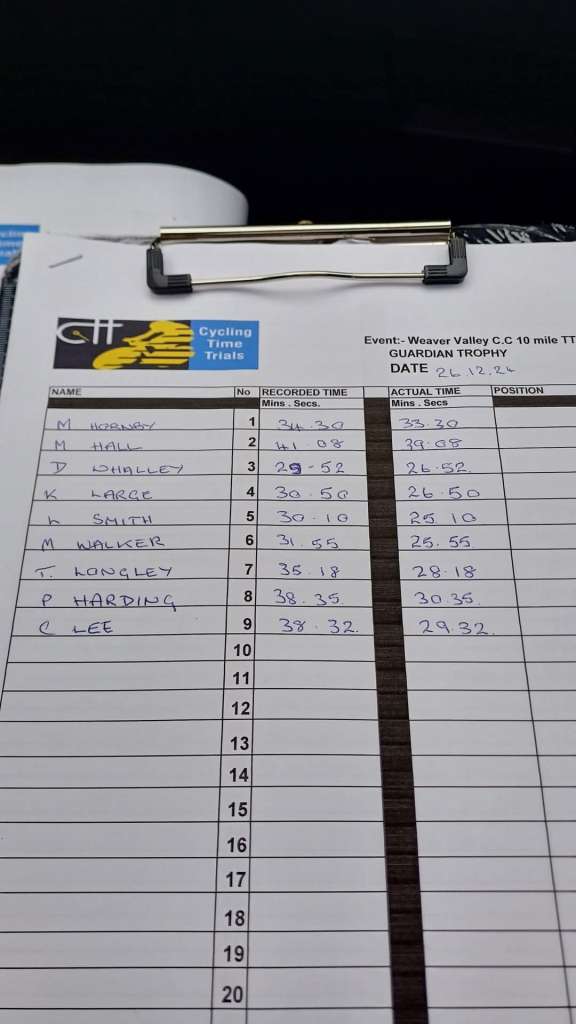 CTT Cycling
Time
Trials
Event:- Weaver Valley C.C 10 mile TT
GUARDIAN TROPHY
DATE 26.12.24
NAME No RECORDED TIME ACTUAL TIME POSITION
Mins . Secs. Mins . Secs
M HORNBY 1 34.30 33.30
M HALL 2 41.08 39.08
D WHALLEY 3 29-52 26.52.
K LARGE 4 30.50 26.50
L SMITH 5 30.10 25.10
M WALKER 6 31.55 25.55
T. LONGLEY 7 35.18 28.18
P HARDING 8 38.35. 30.35.
C LEE 9 38.32. 29.32.
10
11
12
13
14
15
16
17
18
19
20